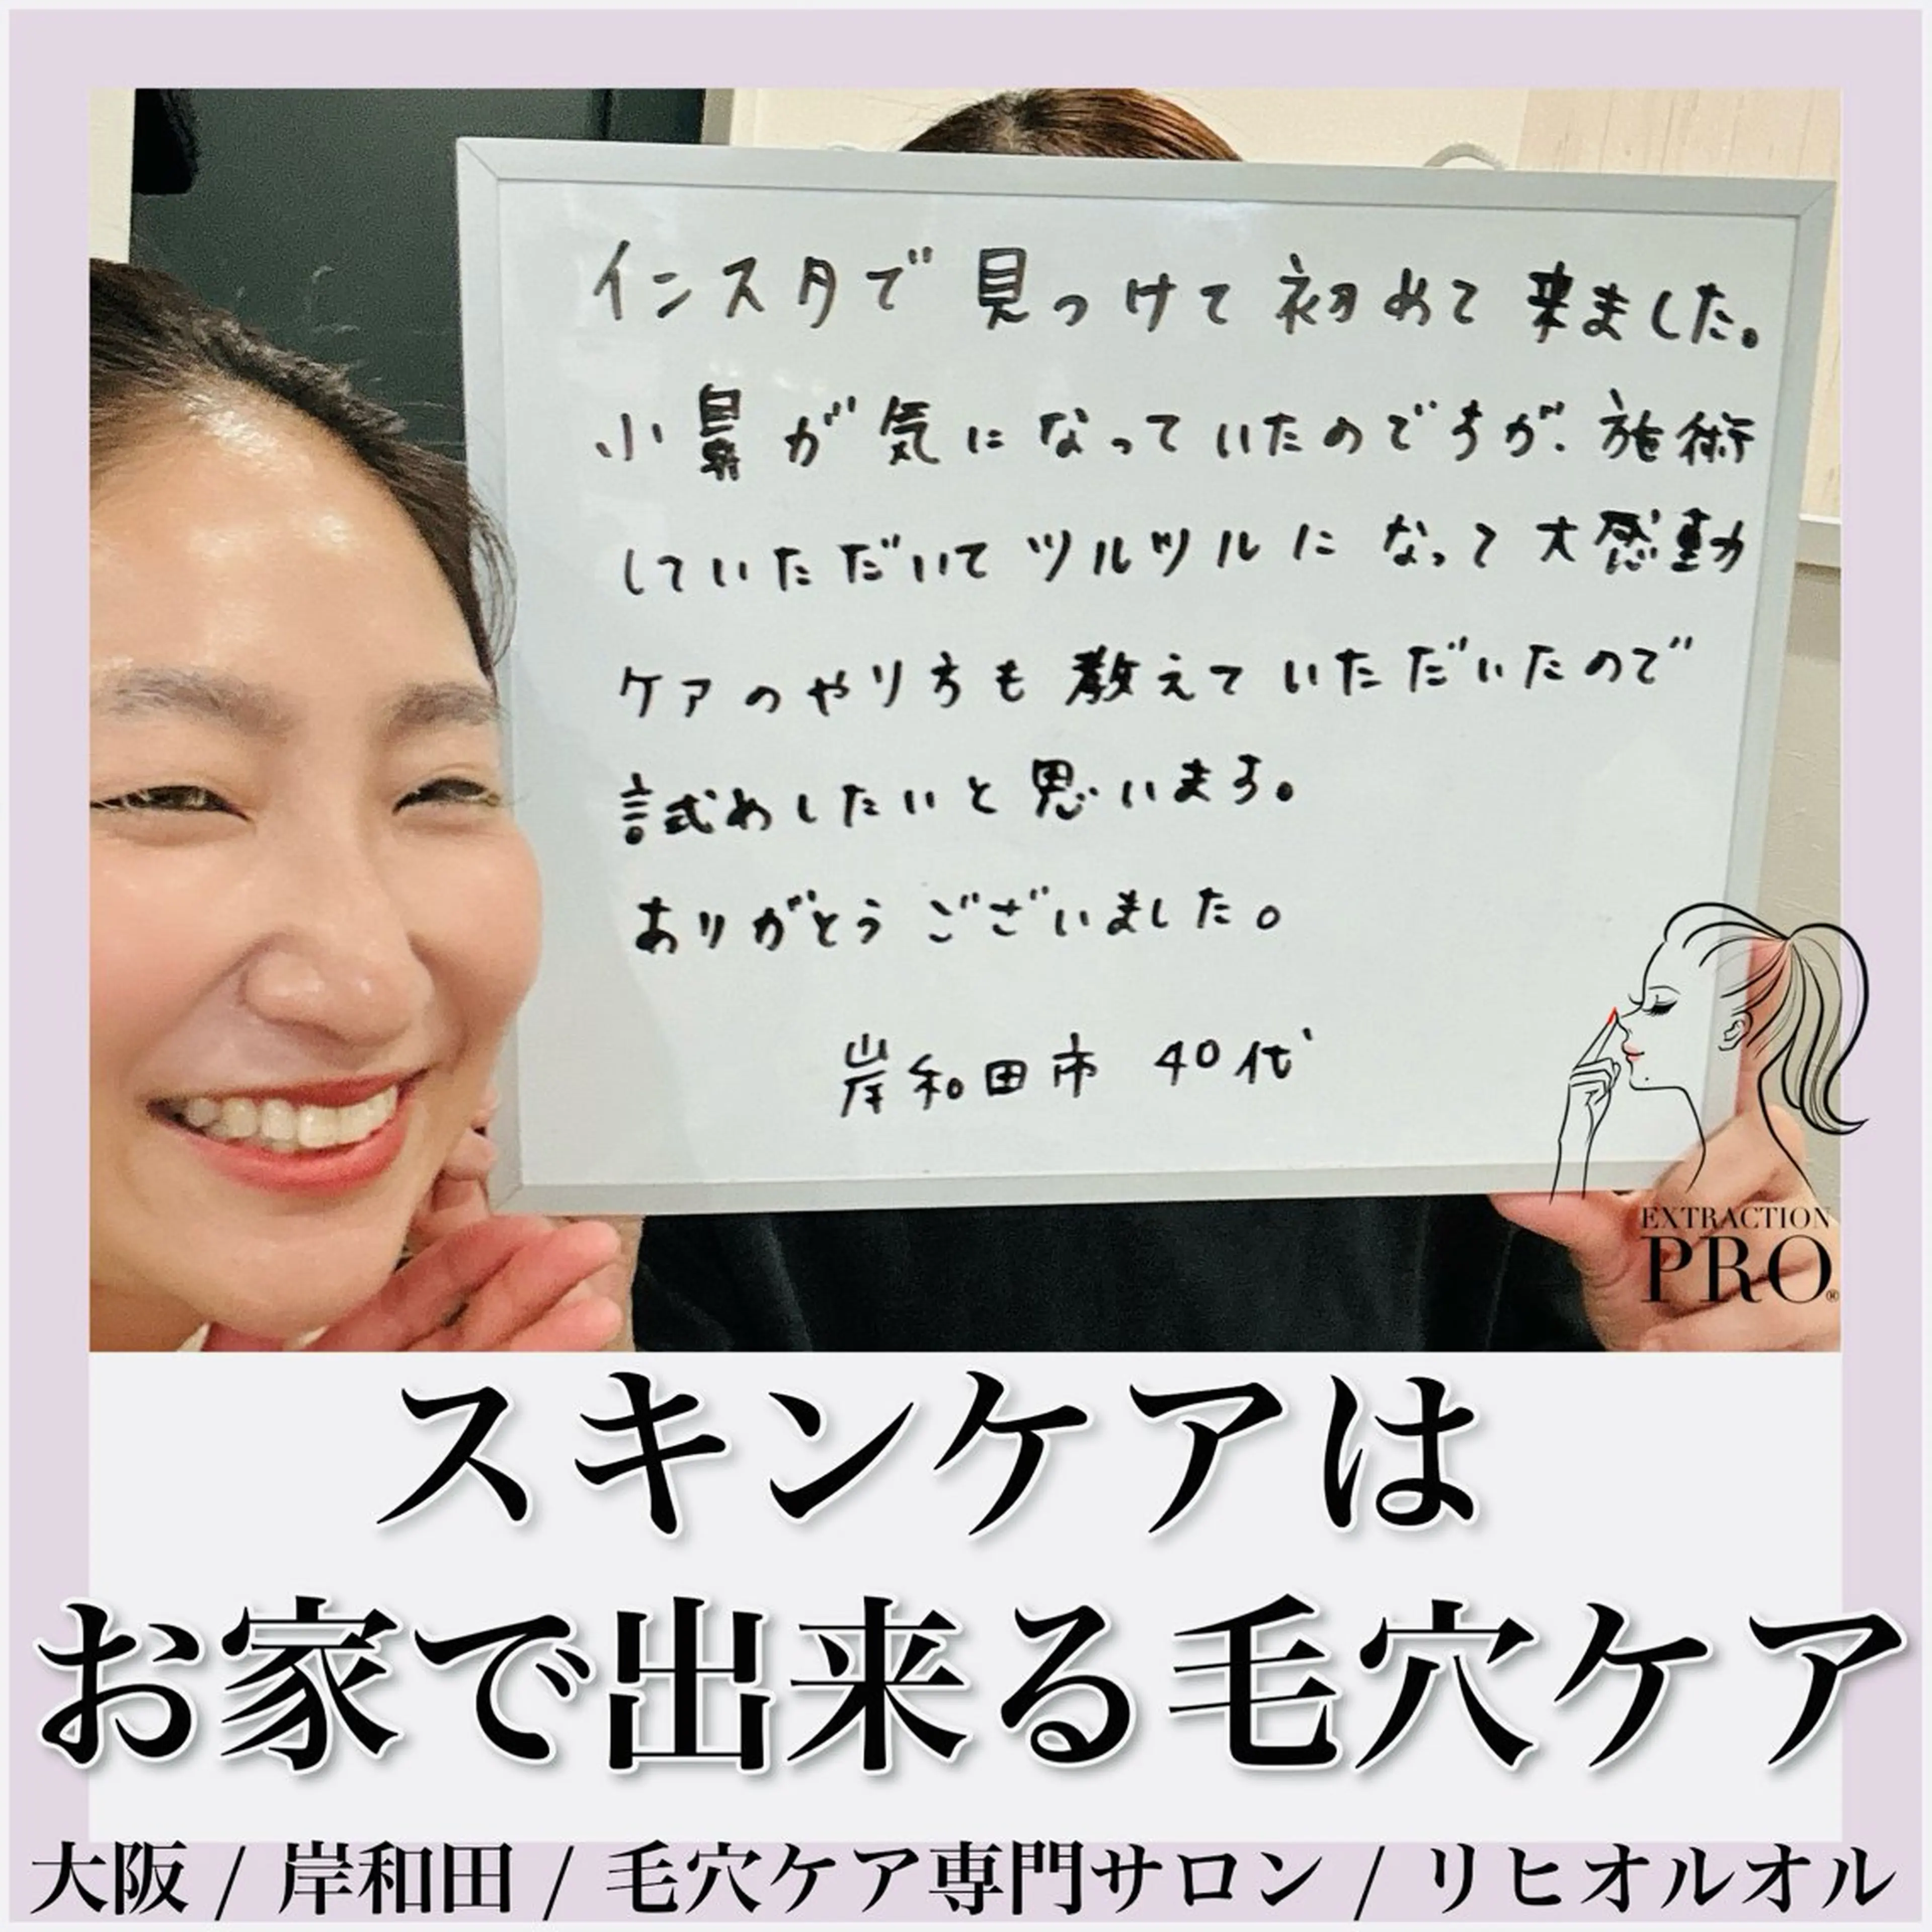 インスタで見つけて初めて来ました。
小鼻が気になっていたのですが、施術
していただいてツルツルになって大感動
ケアのやり方も教えていただいたので
試めしたいと思います。
ありがとうございました。
岸和田市 40代
EXTRACTION
PRO®
スキンケアは
お家で出来る毛穴ケア
大阪 / 岸和田 / 毛穴ケア専門サロン / リヒオルオル